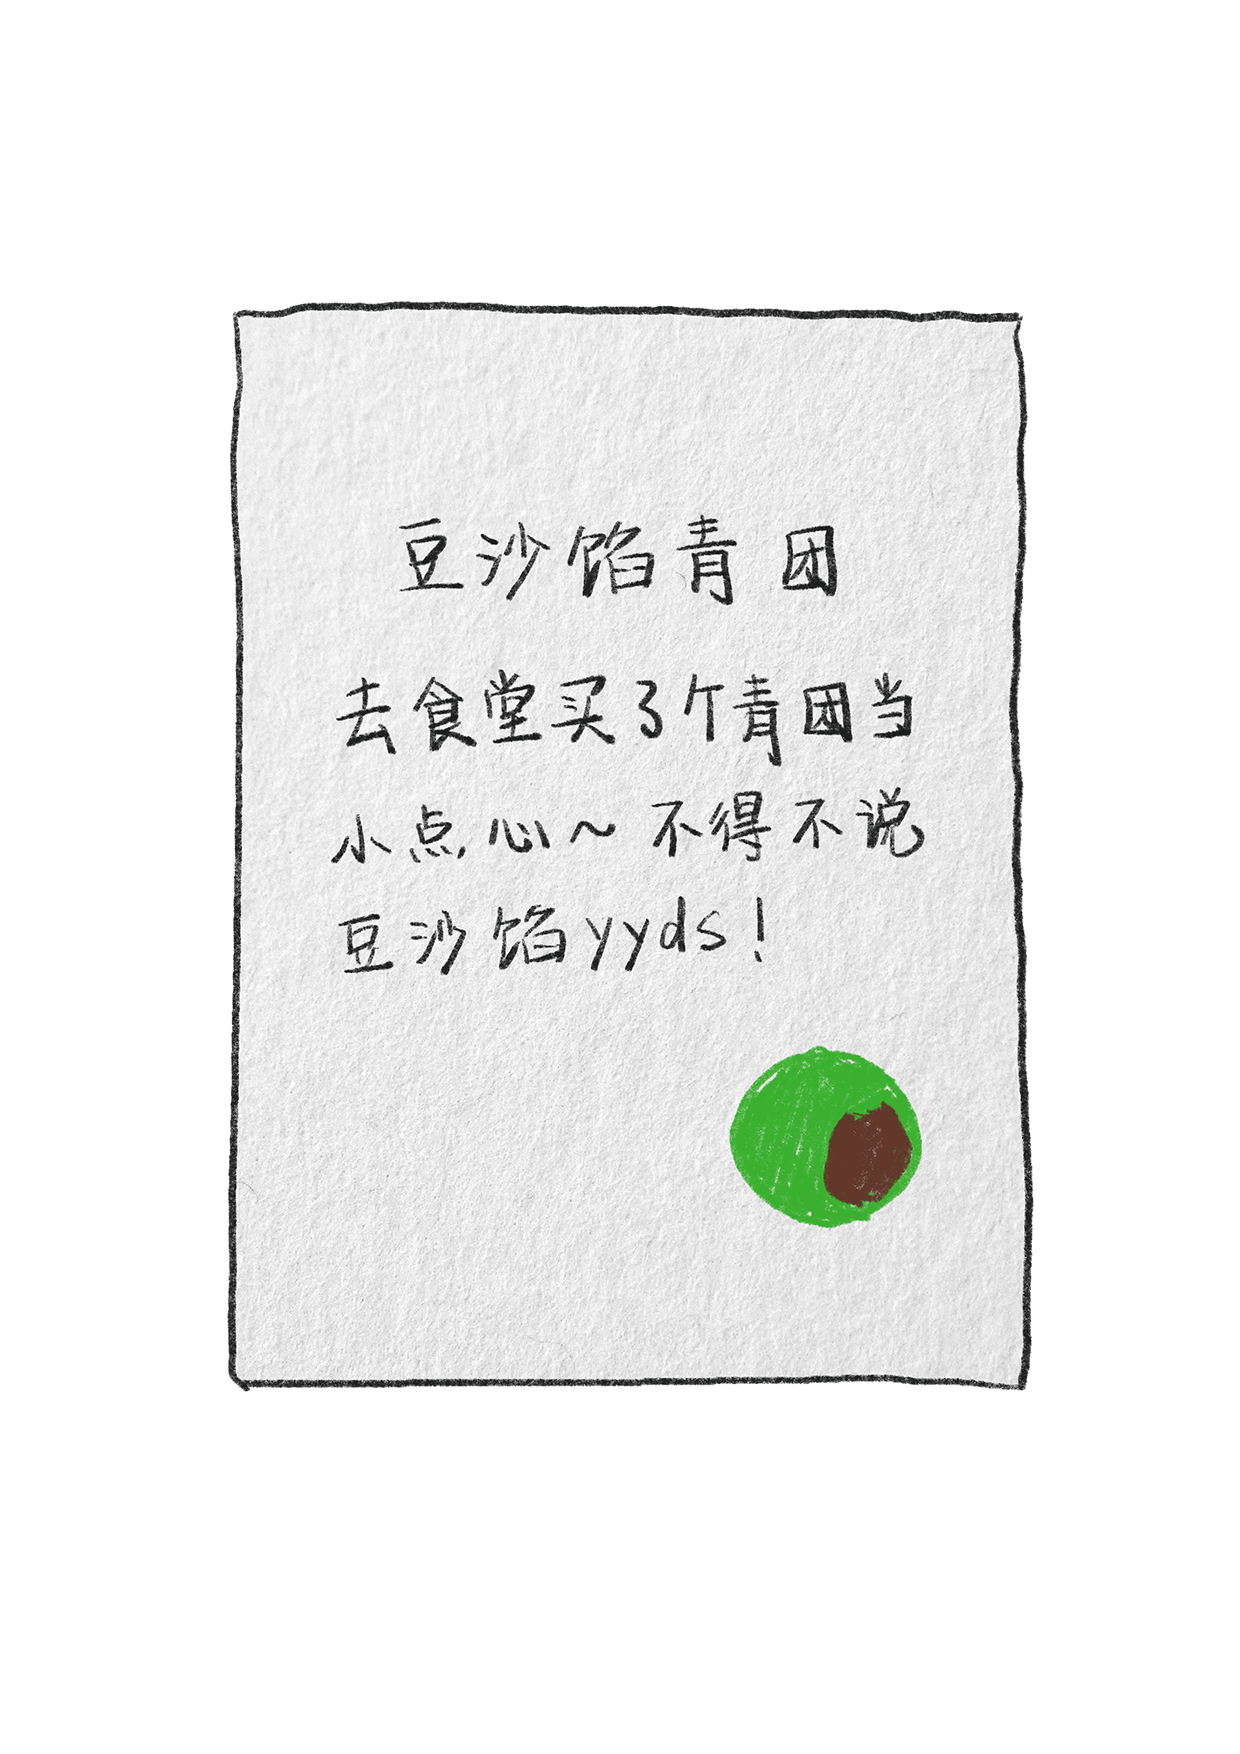 豆沙馅青团
去食堂买了个青团当
小点心～不得不说
豆沙馅yyds！